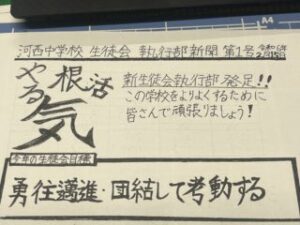 河西中学校 生徒会 執行部新聞 第1号
やる気
根
活
新生徒会執行部発足!!
この学校をよりよくするために
皆さんで頑張りましょう!
今年の生徒会目標
勇往邁進・団結して考動する